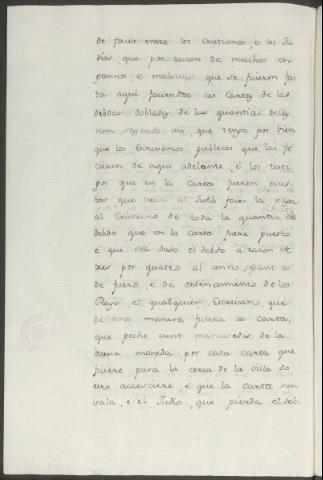 de facer entre los Cristianos, e los Ju
dios, que por razon de muchos en
gannos, e malicias que se ficieron fas
ta aqui faciendo las Cartas de las
debdas dobladas de las quantias dellas
non seyendo asi, que tengo por bien
que los Escrivanos publicos que las fi
cieren de aqui adelante, é los testi
gos que en la Carta fueren pues
tos, que vean al Judio facer la paga
al Cristiano de toda la quantia del
debdo que en la carta fuere puesto
é que sea dado el debdo a razon de
tres por quatro al anno segunt es
de fuero, e de ordenamiento de los
Reys. é qualquier Escrivan que
de otra manera ficiere la carta,
que peche cient maravedis de la
buena moneda por cada carta que
ficiere para la cerca de la villa do
esto acaesciere é que la carta non
vala, e el Judio, que pierda el deb-